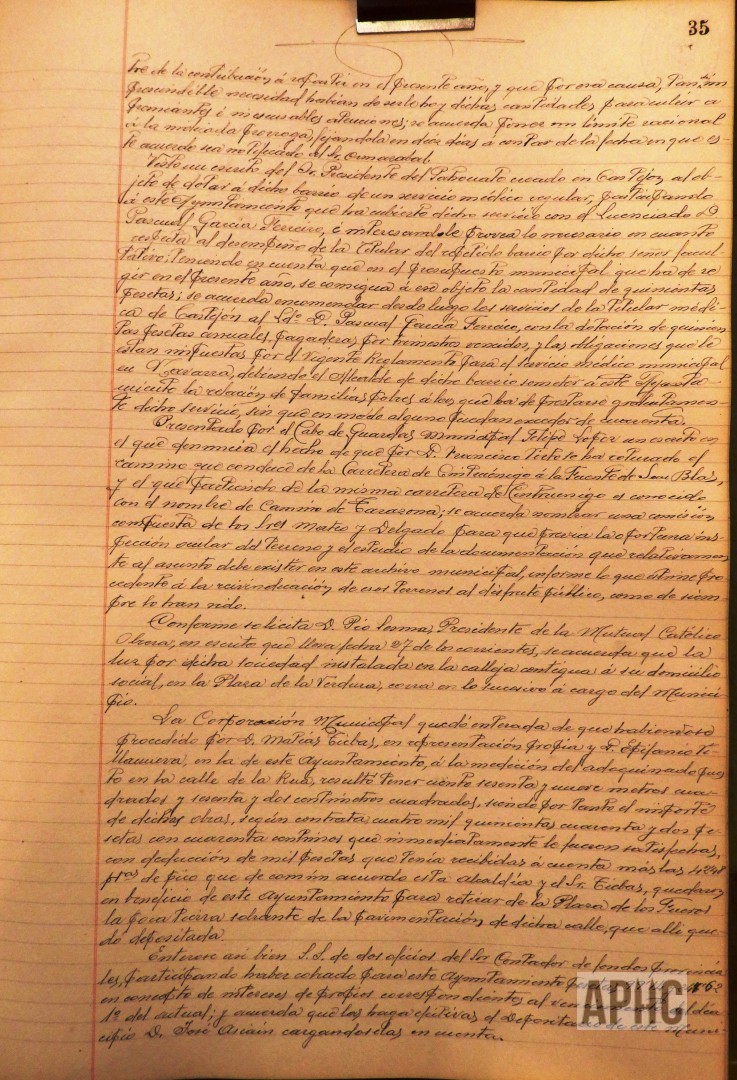 35
tre de la contribución á repartir en el presente año, y que por esa causa,
prescindible necesidad habían de serle hoy dichas cantidades para cubrir a
premiantes é inexcusables atenciones; se acuerda poner un límite racional
á la indicada prórroga, fijándola en diez días á contar de la fecha en que es-
te acuerdo sea notificado al Sr. Ormazabal.
Visto un escrito del Sr. Presidente del Patronato creado en Castejón al ob-
jeto de dotar á dicho barrio de un servicio médico regular, participando
á este Ayuntamiento que ha cubierto dicho servicio con el Licenciado D.
Pascual García Ferreiro, é interesándole provea lo necesario en cuanto
respecta al desempeño de la Titular del repetido barrio por dicho señor facul-
tativo; teniendo en cuenta que en el presupuesto municipal que ha de re-
gir en el presente año, se consigna á ese objeto la cantidad de quinientas
pesetas; se acuerda encomendar desde luego los servicios de la Titular médi-
ca de Castejón al Ldo. D. Pascual García Ferreiro, con la dotación de quinien-
tas pesetas anuales, pagaderas por trimestres vencidos, y las obligaciones que le
están impuestas por el vigente Reglamento para el servicio médico municipal
en Navarra, debiendo el Alcalde de dicho barrio remitir á este Ayunta-
miento la relación de familias pobres á los que ha de prestarse gratuitamen-
te dicho servicio, sin que en modo alguno puedan exceder de cuarenta.
Presentado por el Cabo de Guardas municipal Felipe Lopez un escrito en
el que denuncia el hecho de que por D. Francisco se ha roturado el
camino que conduce de la Carretera de Cintruénigo á la Fuente de San Blas,
y el que partiendo de la misma carretera de Cintruenigo es conocido
con el nombre de Camino de Tarazona; se acuerda nombrar una comisión
compuesta de los Sres. Mateo y Delgado para que previa la oportuna ins-
pección ocular del terreno y el estudio de la documentación que relativamen-
te al asunto debe existir en este archivo municipal, informe lo que estime pro-
cedente á la reivindicación de esos terrenos al disfrute público, como de siem-
pre lo han sido.
Conforme solicita D. Pío Sesma, Presidente de la Mutual Católico
Obrera, en escrito que lleva fecha 27 de los corrientes, se acuerda que la
luz por dicha sociedad instalada en la calleja contigua á su domicilio
social, en la Plaza de la Verdura, corra en lo sucesivo á cargo del Munici-
pio.
La Corporación Municipal quedó enterada de que habiéndose
procedido por D. Matías Tiebas, en representación propia y D. Epifanio Vi-
llanueva, en la de este Ayuntamiento, á la medición del adoquinado pues-
to en la calle de la Rua, resultó tener ciento sesenta y nueve metros cua-
drados y sesenta y dos centímetros cuadrados, siendo por tanto el importe
de dichas obras, según contrata cuatro mil quinientas cuarenta y dos pe-
setas con cuarenta céntimos que inmediatamente le fueron satisfechas,
con deducción de mil pesetas que tenía recibidas á cuenta más las
ptas de pico que de común acuerdo esta Alcaldía y el Sr. Tiebas, quedaron
en beneficio de este Ayuntamiento para retirar de la Plaza de los Fueros
la poca piedra sobrante de la pavimentación de dicha calle, que allí que-
dó depositada.
Enterose así bien S.S. de dos oficios del Sr. Contador de fondos provincia-
les, participando haber cobrado para este Ayuntamiento
en concepto de intereses de propios correspondientes al
1º del actual; y acuerda que las haga efectivas el Depositario de este Muni-
cipio D. José Asiain cargándoselas en cuenta.
APHC